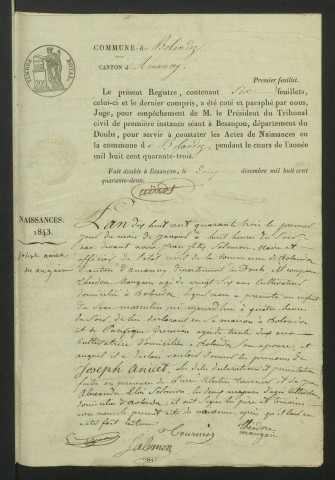 TIMBRE ROYAL
COMMUNE de Bolandoz
CANTON d'Amancey
Premier feuillet.
Le présent Registre, contenant Six feuillets,
celui-ci et le dernier compris, a été coté et paraphé par nous,
Juge, pour empêchement de M. le Président du Tribunal
civil de première instance séant à Besançon, département du
Doubs, pour servir à constater les Actes de Naissances en
la commune de Bolandoz, pendant le cours de l'année
mil huit cent quarante-trois.
Fait double à Besançon, le décembre mil huit cent
quarante-deux.
NAISSANCES.
1843.
Joseph anicet
maugain
L'an dix huit cent quarante trois le premier
jour du mois de janvier à huit heures du soir
par devant nous Salomon, Maire et
officier de l'état civil de la commune de Bolandoz
canton d'amancey département du Doubs, est comparu
Théodore Maugain âgé de vingt six ans Cultivateur
domicilié à Bolandoz lequel nous a présenté un enfant
du sexe masculin né aujourd'hui à quatre heures
du soir, de lui déclarant en sa maison à Bolandoz
et de Pacifique âgée de trente deux ans
cultivatrice domiciliée à Bolandoz Son épouse, et
auquel il a déclaré vouloir donner les prénoms de
Joseph Anicet. Les dites déclarations et présentation
faites en présence de Pierre
Alexandre Salomon, tous deux majeurs d'age Cultivateurs
domiciliés à Bolandoz, et ont signé les père et témoins
avec nous le présent acte de naissance après qu'il leur en
a été fait lecture.
Salomon
Théodore
maugain